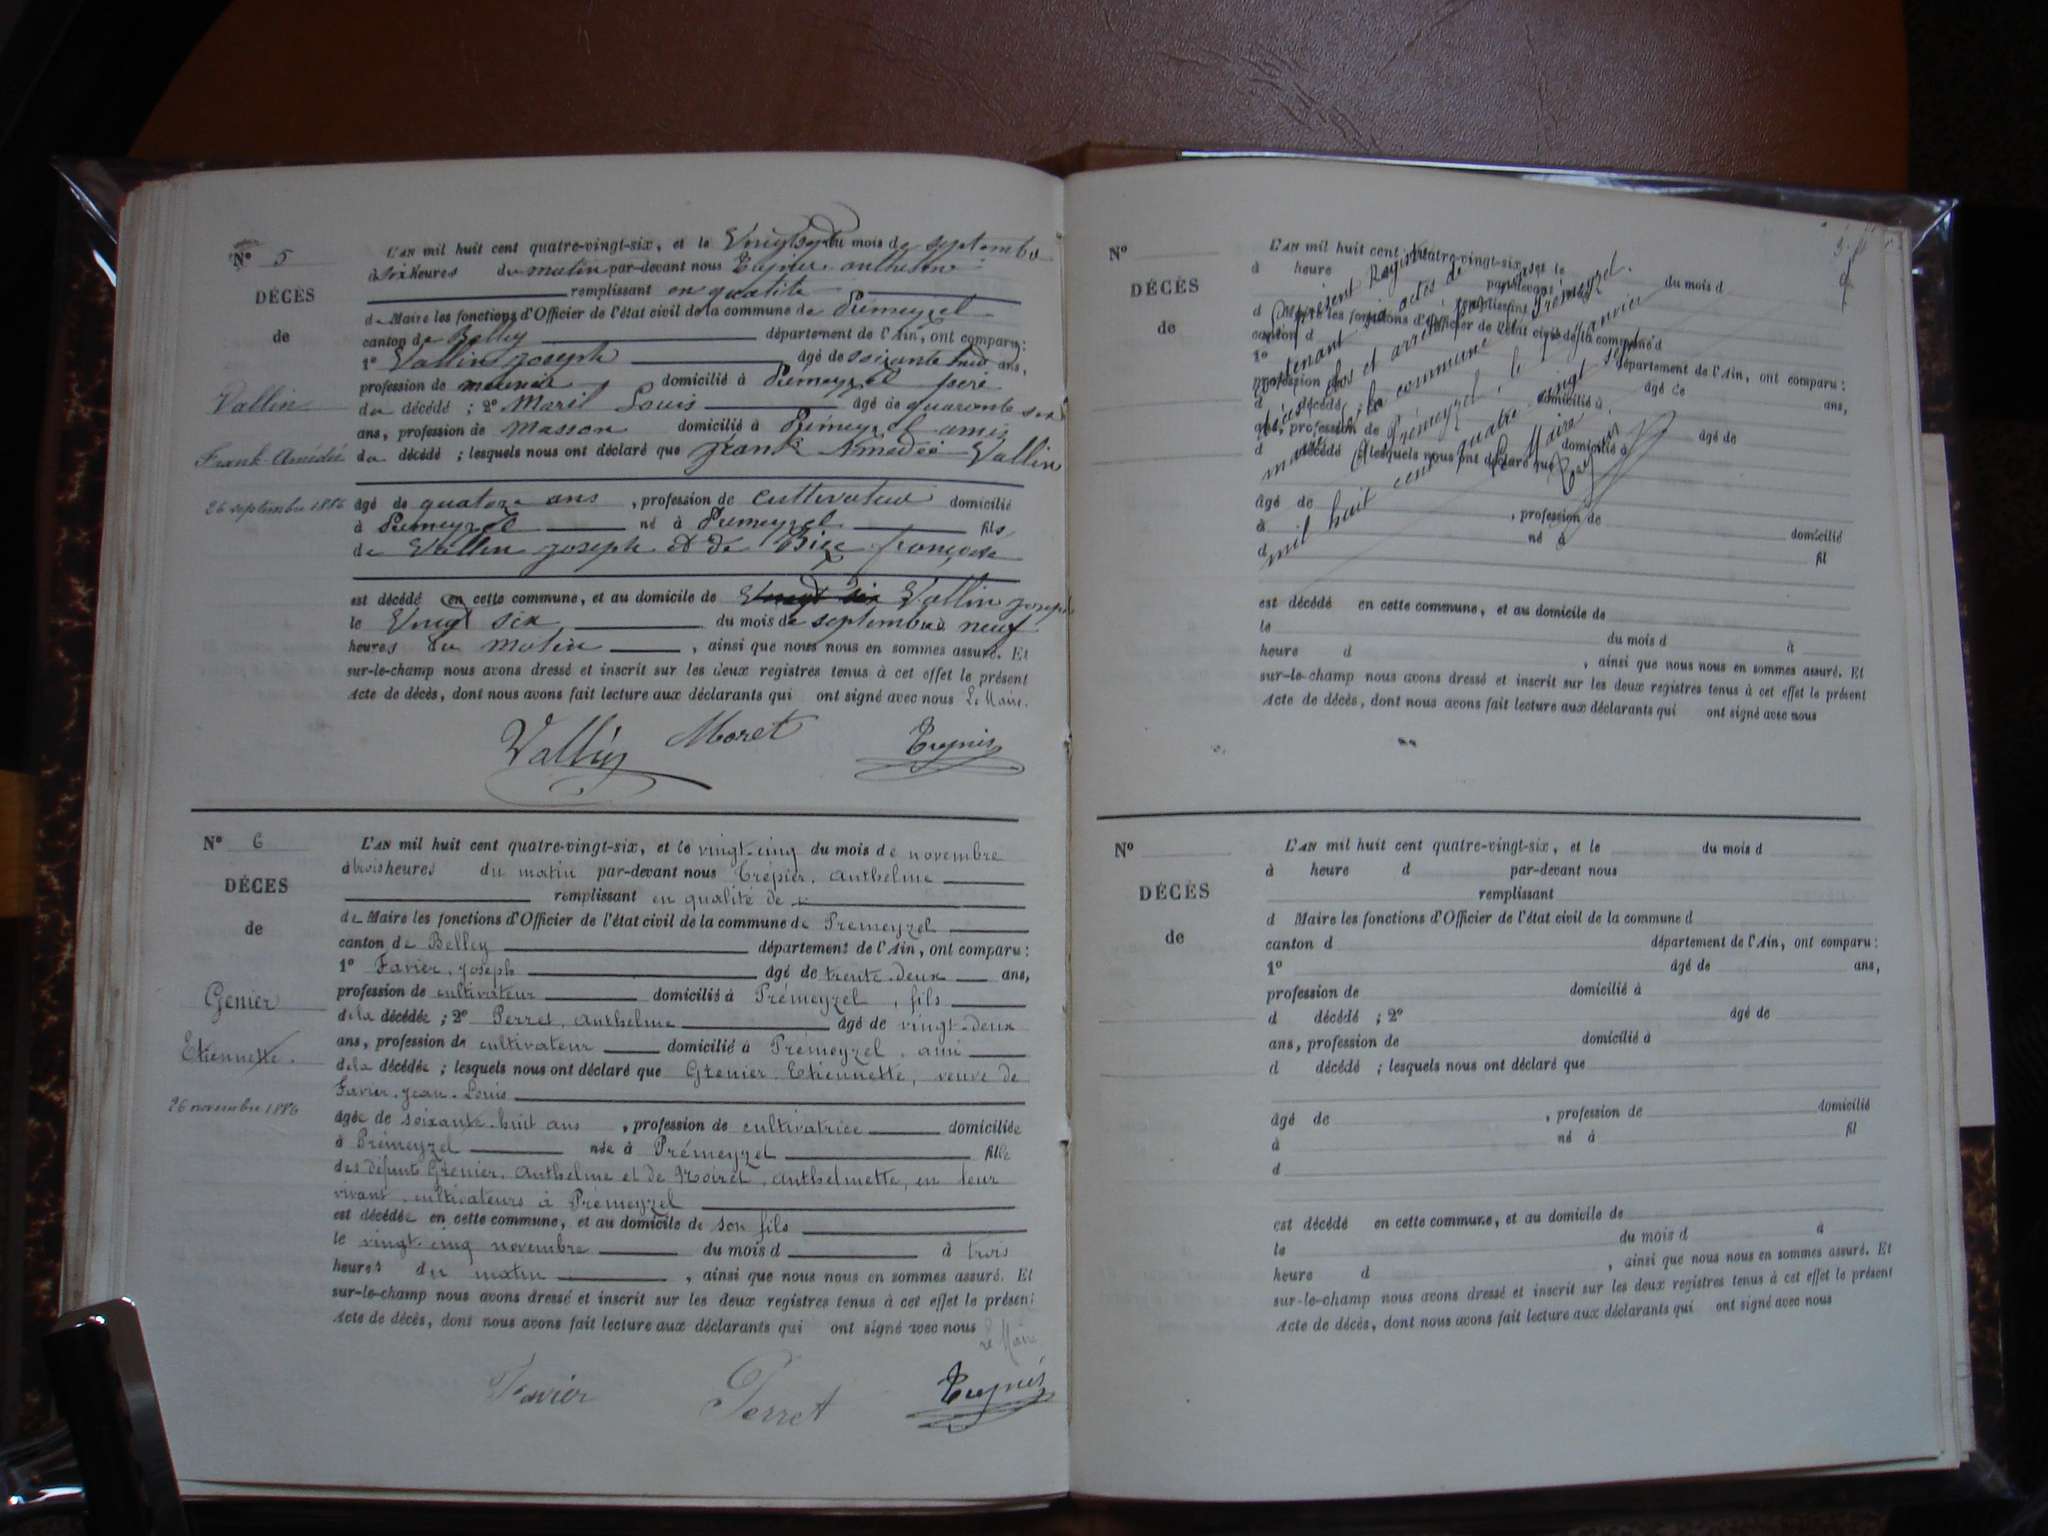 N° 5
DÉCÈS
de
Vallin
Frank Amédée
26 septembre 1886
L'AN mil huit cent quatre-vingt-six, et le Vingt sept du mois de septembre
à six heures du matin par-devant nous Trepier anthelme
remplissant en qualité
de Maire les fonctions d'Officier de l'état civil de la commune de Prémeyzel
canton de Belley département de l'Ain, ont comparu :
1° Vallin joseph âgé de soixante ans,
profession de domicilié à Prémeyzel père
du décédé ; 2° Louis âgé de quarante six
ans, profession de Masson domicilié à Prémeyzel amis
du décédé ; lesquels nous ont déclaré que frank Amédée Vallin
âgé de quatorze ans , profession de cultivateur domicilié
à Premeyzel né à Premeyzel fils
de Vallin joseph et de françoise
est décédé en cette commune, et au domicile de Vingt six Vallin joseph
le Vingt six du mois de septembre à neuf
heures du matin , ainsi que nous nous en sommes assuré. Et
sur-le-champ nous avons dressé et inscrit sur les deux registres tenus à cet effet le présent
Acte de décès, dont nous avons fait lecture aux déclarants qui ont signé avec nous Le Maire.
Vallin Moret Trepier
N° 6
DÉCES
de
Genier
Etiennette.
26 novembre 1886
L'AN mil huit cent quatre-vingt-six, et le vingt-cinq du mois de novembre
à trois heures du matin par-devant nous Trépier, anthelme
remplissant en qualité de
de Maire les fonctions d'Officier de l'état civil de la commune de Prémeyzel
canton de Belley département de l'Ain, ont comparu :
1° Favier, joseph âgé de trente-deux ans,
profession de cultivateur domicilié à Prémeyzel, fils
de la décédée ; 2° Perret, anthelme âgé de vingt-deux
ans, profession de cultivateur domicilié à Prémeyzel, ami
de la décédée ; lesquels nous ont déclaré que Grenier Etiennette, veuve de
Favier, jean-Louis
âgée de soixante-huit ans , profession de cultivatrice domiciliée
à Prémeyzel née à Prémeyzel fille
des défunts Grenier, anthelme et de Moiret, anthelmette, en leur
vivant, cultivateurs à Prémeyzel
est décédée en cette commune, et au domicile de son fils
le vingt-cinq novembre du mois d à trois
heures du matin , ainsi que nous nous en sommes assuré. Et
sur-le-champ nous avons dressé et inscrit sur les deux registres tenus à cet effet le présent
Acte de décès, dont nous avons fait lecture aux déclarants qui ont signé avec nous Le Maire
Favier Perret Trepier
N°
DÉCÈS
de
L'AN mil huit cent quatre-vingt-six, et le du mois d
à heure d par-devant nous
remplissant
d Maire les fonctions d'Officier de l'état civil de la commune d
canton d département de l'Ain, ont comparu :
1° âgé de ans,
profession de domicilié à
d décédé ; 2° âgé de
ans, profession de domicilié à
d décédé ; lesquels nous ont déclaré que
âgé de , profession de domicilié
à né à fil
d
présent Registre
contenant six actes de
décès, clos et arrêté par nous
maire de la commune de Prémeyzel.
à Prémeyzel, le premier janvier
mil huit cent quatre vingt sept
Le Maire
Trepier
est décédé en cette commune, et au domicile de
le du mois d à
heure d , ainsi que nous nous en sommes assuré. Et
sur-le-champ nous avons dressé et inscrit sur les deux registres tenus à cet effet le présent
Acte de décès, dont nous avons fait lecture aux déclarants qui ont signé avec nous
N°
DÉCÈS
de
L'AN mil huit cent quatre-vingt-six, et le du mois d
à heure d par-devant nous
remplissant
d Maire les fonctions d'Officier de l'état civil de la commune d
canton d département de l'Ain, ont comparu :
1° âgé de ans,
profession de domicilié à
d décédé ; 2° âgé de
ans, profession de domicilié à
d décédé ; lesquels nous ont déclaré que
âgé de , profession de domicilié
à né à fil
d
est décédé en cette commune, et au domicile de
le du mois d à
heure d , ainsi que nous nous en sommes assuré. Et
sur-le-champ nous avons dressé et inscrit sur les deux registres tenus à cet effet le présent
Acte de décès, dont nous avons fait lecture aux déclarants qui ont signé avec nous